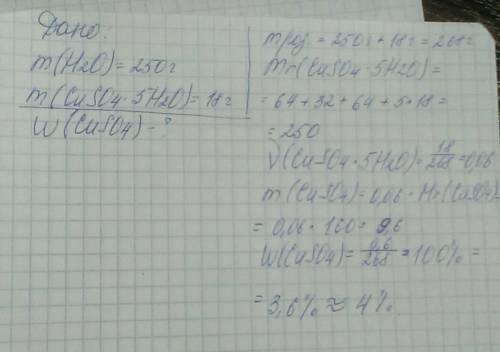 Дано:
m(H2O)=250г
m(CuSO4·5H2O)=18г
W(CuSO4)-?
mроз = 250г+18г=268г
Mr(CuSO4·5H2O)=
=64+32+64+5·18=
=250
ν(CuSO4·5H2O)=18/268=0,06
m(CuSO4)=0,06·Mr(CuSO4)=
=0,06·160=9,6
W(CuSO4)=9,6/268·100%=
=3,6%≈4%